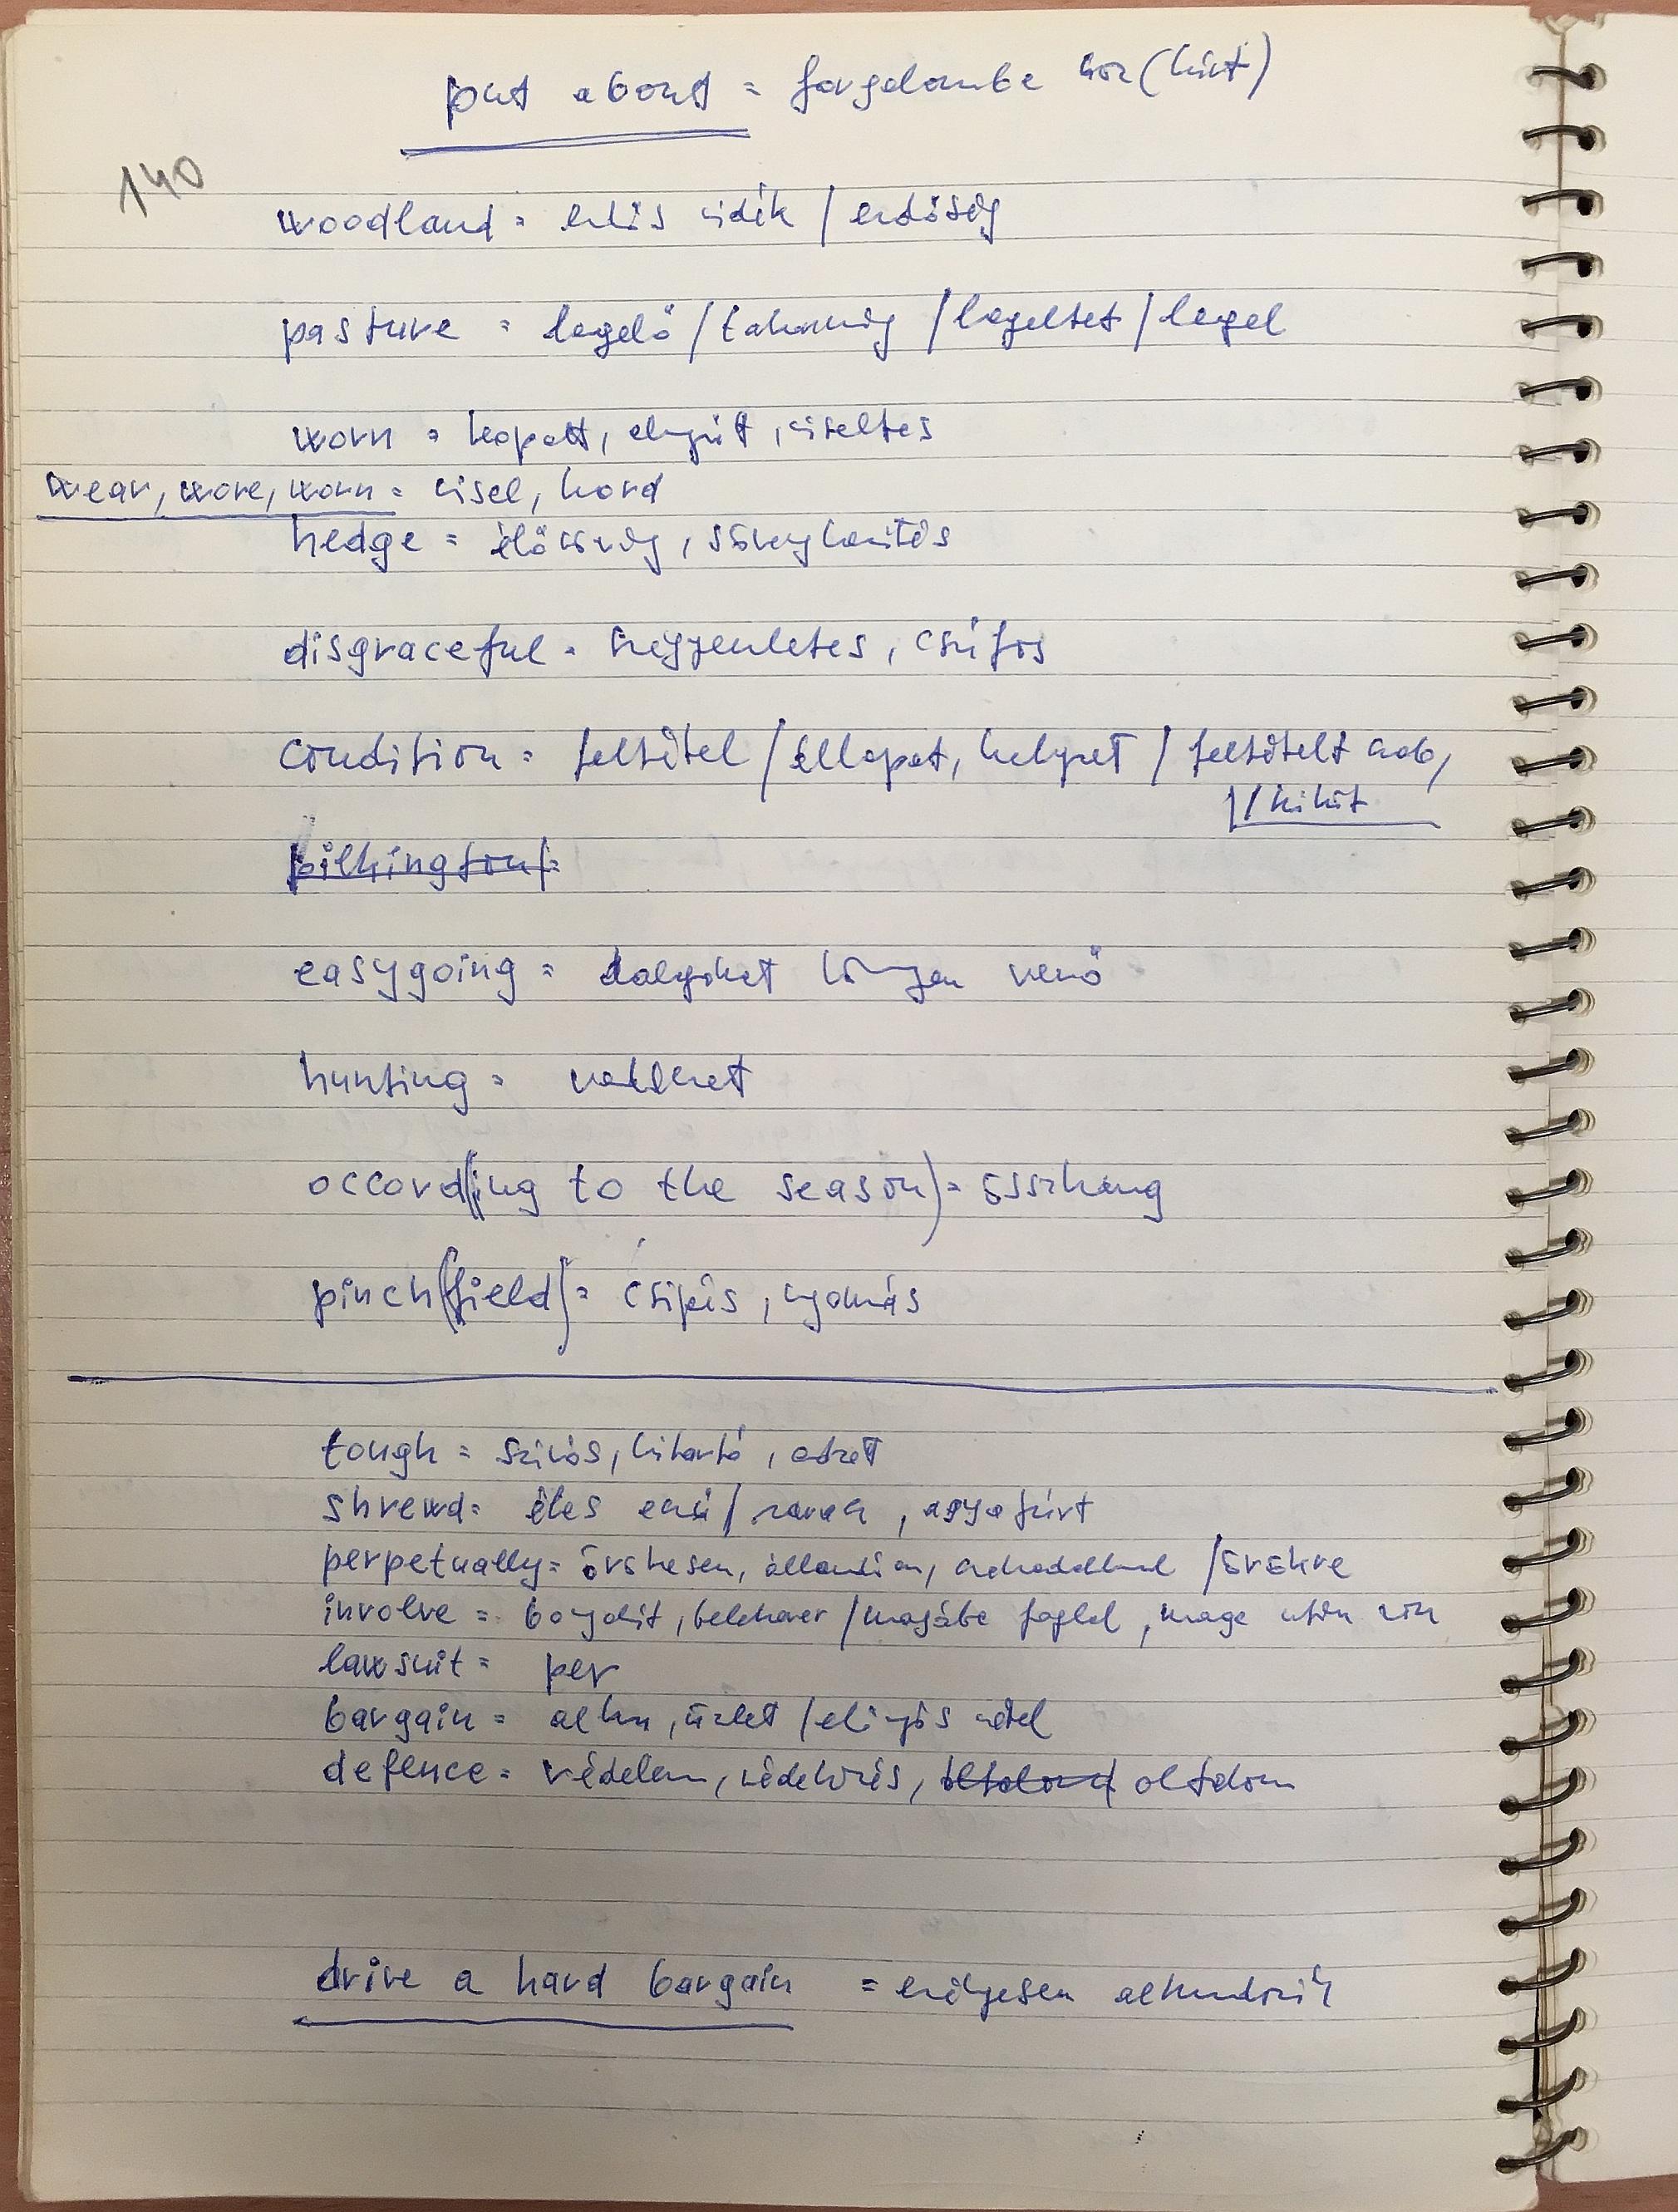 put about = forgalomba hoz (hírt)
140
woodland = erdős vidék / erdőség
pasture = legelő / takarmány / legeltet / legel
worn = kopott, elnyűtt, viseltes
wear, wore, worn = visel, hord
hedge = élősövény, sövénykerítés
disgraceful = szégyenletes, csúfos
condition = feltétel / állapot, helyzet / feltételt szab,
/ kiköt
pilkington =
easygoing = dolgokat könnyen vevő
hunting = vadászat
accord(ing to the season) = összhang
pinch(field) = csípés, nyomás
tough = szívós, kitartó, edzett
shrewd = éles eszű / ravasz, agyafúrt
perpetually = örökösen, állandóan, szakadatlanul / örökre
involve = bonyolít, belekever / magába foglal, maga után von
lawsuit = per
bargain = alku, üzlet / előnyös vétel
defence = védelem, védekezés, oltalom
drive a hard bargain = erélyesen alkudozik